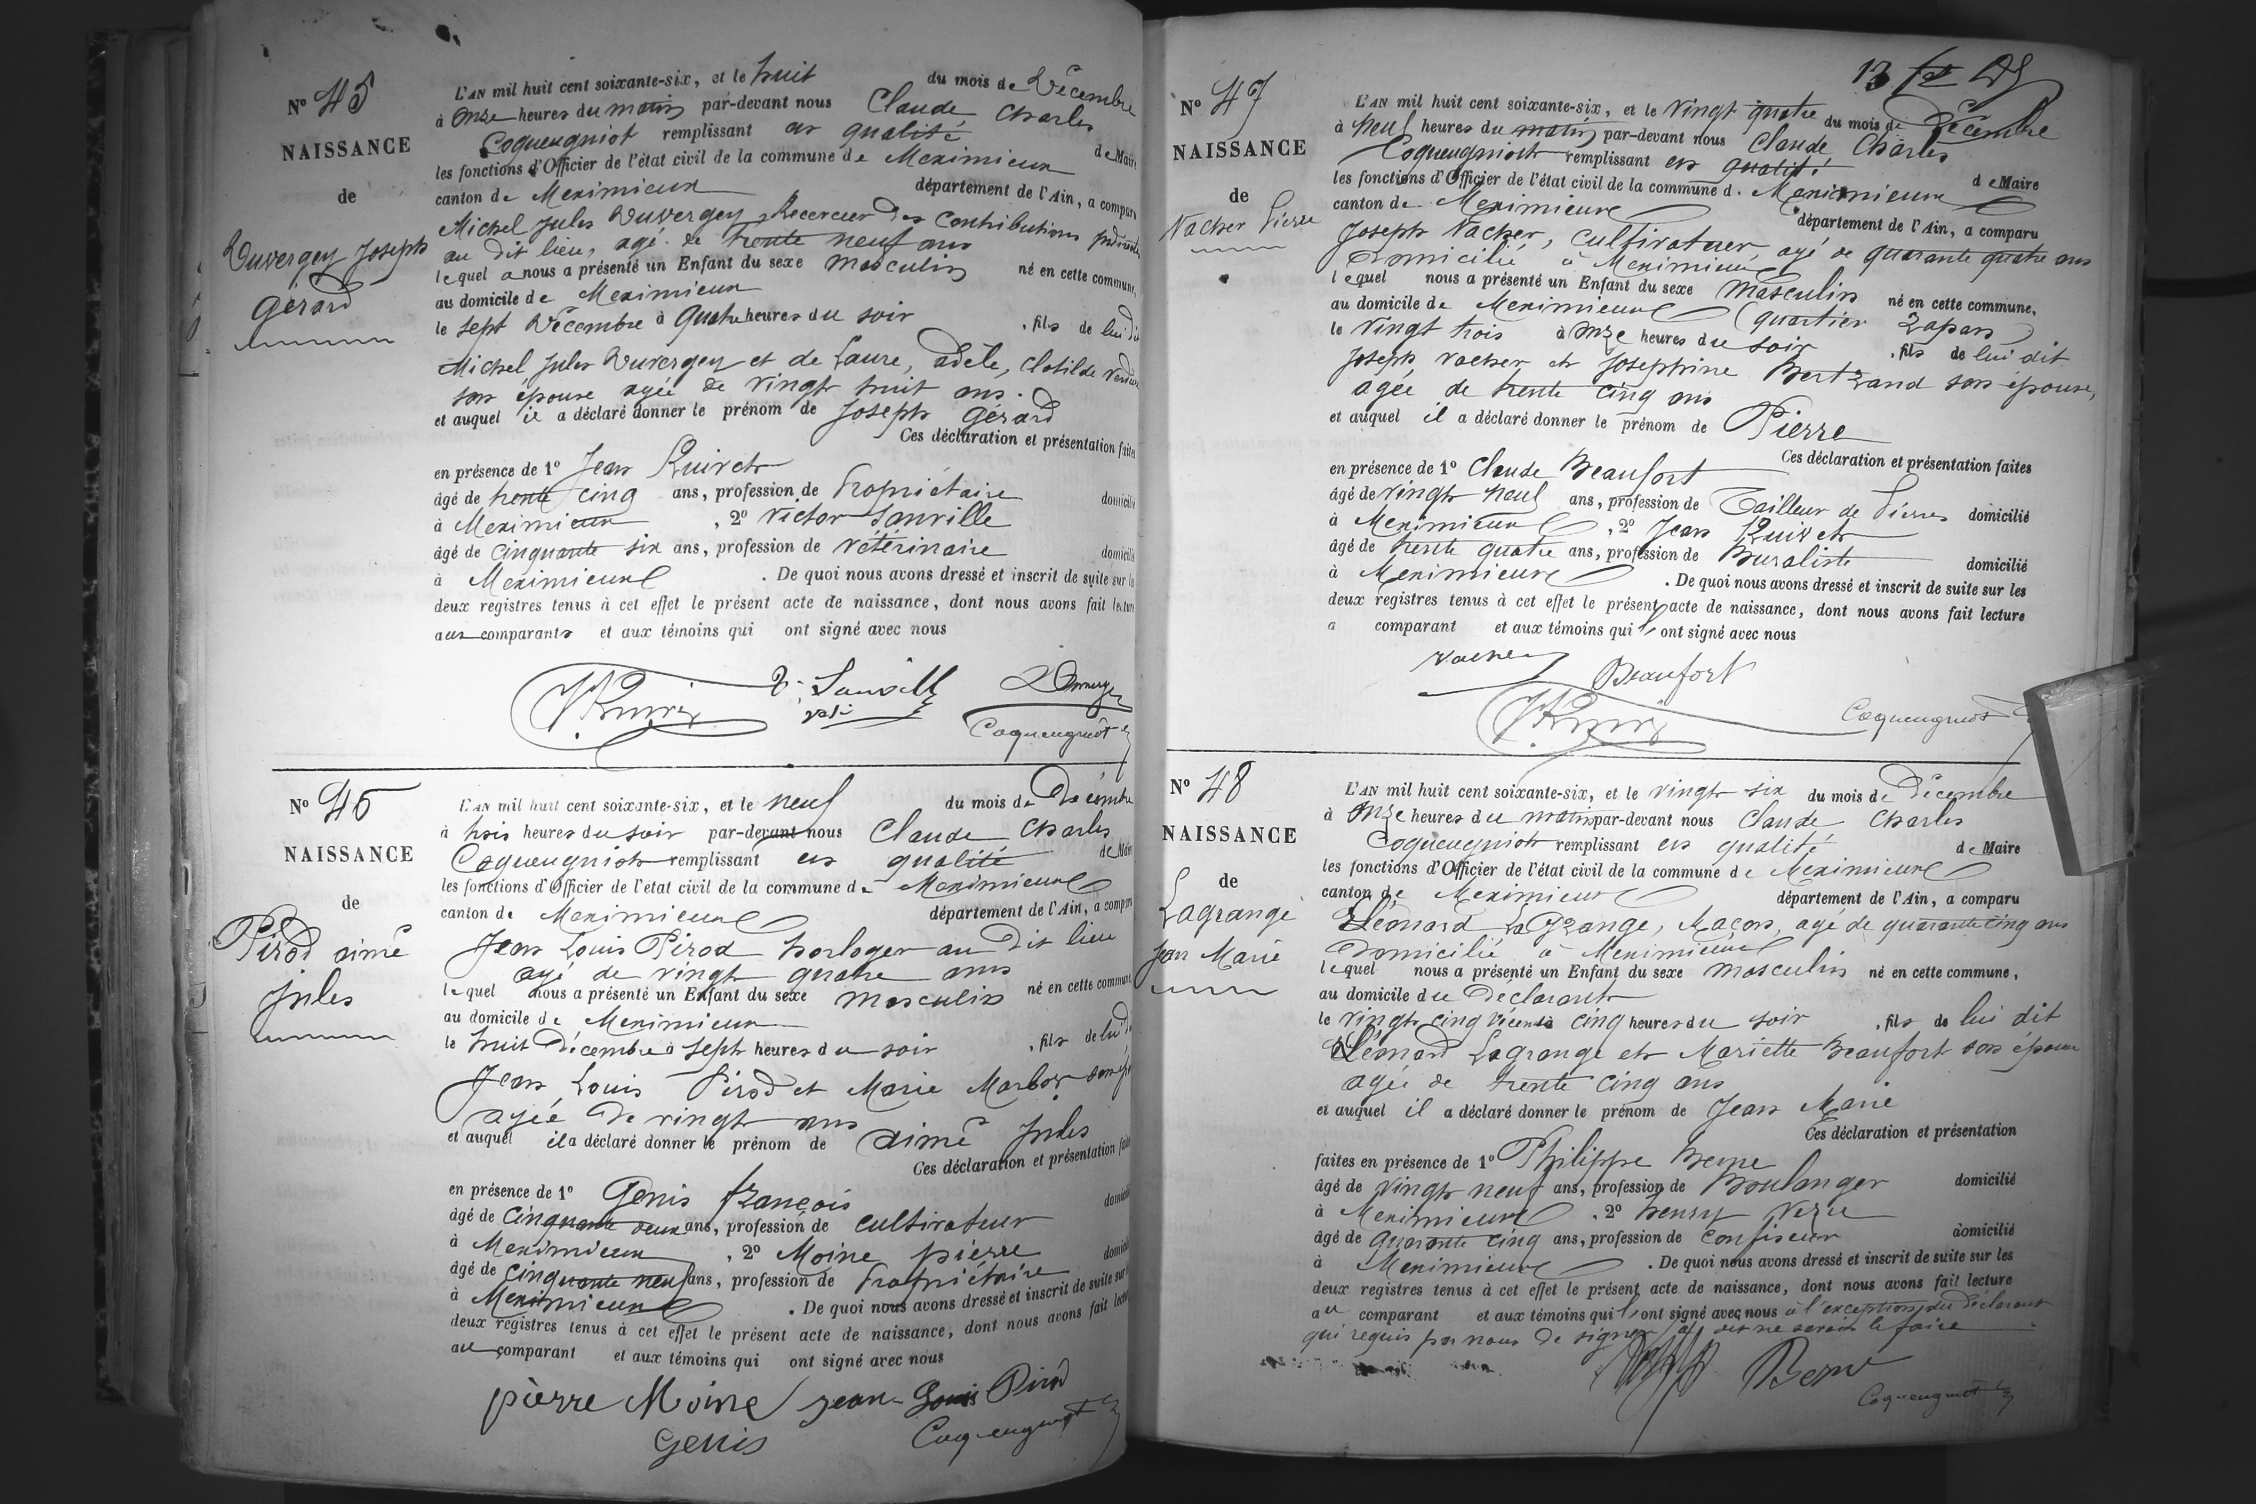 N° 45
NAISSANCE
de
Duvergey Joseph
Gérard
L'AN mil huit cent soixante-six, et le huit du mois de Décembre
à onze heures du matin par-devant nous Claude Charles
Coqueugniot remplissant en qualité de Maire
les fonctions d'Officier de l'état civil de la commune de Meximieux
canton de Meximieux département de l'Ain, a comparu
Michel Jules Duvergey Receveur des Contributions
au dit lieu, agé de trente neuf ans
lequel a nous a présenté un Enfant du sexe masculin né en cette commune,
au domicile de Meximieux
le sept Décembre à quatre heures du soir , fils de lui dit
Michel Jules Duvergey et de Laure, adèle, Clotilde
son épouse agée de vingt huit ans.
et auquel il a déclaré donner le prénom de Joseph Gérard
Ces déclaration et présentation faites
en présence de 1° Jean Ruivet
âgé de trente cinq ans, profession de Propriétaire domicilié
à Meximieux , 2° Victor Sauville
âgé de cinquante six ans, profession de vétérinaire domicilié
à Meximieux . De quoi nous avons dressé et inscrit de suite sur les
deux registres tenus à cet effet le présent acte de naissance, dont nous avons fait lecture
aux comparants et aux témoins qui ont signé avec nous
Coqueugniot
N° 46
NAISSANCE
de
Pirod aimé
Jules
L'AN mil huit cent soixante-six, et le neuf du mois de Décembre
à trois heures du soir par-devant nous Claude Charles
Coqueugniot remplissant en qualité de Maire
les fonctions d'Officier de l'état civil de la commune de Meximieux
canton de Meximieux département de l'Ain, a comparu
Jean Louis Pirod horloger au dit lieu
agé de vingt quatre ans
lequel nous a présenté un Enfant du sexe masculin né en cette commune
au domicile de Meximieux
le huit Décembre à sept heures du soir , fils de lui dit
Jean Louis Pirod et Marie Marbor son
agée de vingt ans
et auquel il a déclaré donner le prénom de aimé Jules
Ces déclaration et présentation faites
en présence de 1° Genis françois
âgé de cinquante deux ans, profession de cultivateur domicilié
à Meximieux , 2° Moine pierre
âgé de cinquante neuf ans, profession de Propriétaire domicilié
à Meximieux . De quoi nous avons dressé et inscrit de suite sur
deux registres tenus à cet effet le présent acte de naissance, dont nous avons fait lecture
au comparant et aux témoins qui ont signé avec nous
pierre Moine jean Louis Pirod
Genis Coqueugniot
13
N° 47
NAISSANCE
de
Vacher Pierre
L'AN mil huit cent soixante-six, et le vingt quatre du mois de Décembre
à neuf heures du matin par-devant nous Claude Charles
Coqueugniot remplissant en qualité de Maire
les fonctions d'Officier de l'état civil de la commune d. Meximieux
canton de Meximieux département de l'Ain, a comparu
Joseph Vacher, cultivateur, agé de quarante quatre ans
Domicilié à Meximieux
lequel nous a présenté un Enfant du sexe masculin né en cette commune,
au domicile de Meximieux quartier Lapan
le vingt trois à onze heures du soir , fils de lui dit
Joseph Vacher et Josephine Bertrand son épouse,
agée de trente cinq ans
et auquel il a déclaré donner le prénom de Pierre
Ces déclaration et présentation faites
en présence de 1° Claude Beaufort
âgé de vingt neuf ans, profession de Tailleur de Pierres domicilié
à Meximieux , 2° Jean Ruivet
âgé de trente quatre ans, profession de Buraliste domicilié
à Meximieux . De quoi nous avons dressé et inscrit de suite sur les
deux registres tenus à cet effet le présent acte de naissance, dont nous avons fait lecture
a comparant et aux témoins qui ont signé avec nous
Vacher
Beaufort
Coqueugniot
N° 48
NAISSANCE
de
Lagrange
Jean Marie
L'AN mil huit cent soixante-six, et le vingt six du mois de Décembre
à onze heures du matin par-devant nous Claude Charles
Coqueugniot remplissant en qualité de Maire
les fonctions d'Officier de l'état civil de la commune de Meximieux
canton de Meximieux département de l'Ain, a comparu
Léonard Lagrange, Maçon, agé de quarante cinq ans
Domicilié à Meximieux
lequel nous a présenté un Enfant du sexe masculin né en cette commune,
au domicile du Déclarant
le vingt cinq Décembre à cinq heures du soir , fils de lui dit
Léonard Lagrange et Mariette Beaufort son épouse
agée de trente cinq ans
et auquel il a déclaré donner le prénom de Jean Marie
Ces déclaration et présentation
faites en présence de 1° Philippe Berne
âgé de vingt neuf ans, profession de Boulanger domicilié
à Meximieux , 2° henry
âgé de quarante cinq ans, profession de confiseur domicilié
à Meximieux . De quoi nous avons dressé et inscrit de suite sur les
deux registres tenus à cet effet le présent acte de naissance, dont nous avons fait lecture
au comparant et aux témoins qui ont signé avec nous à l'exception du Déclarant
qui requis par nous de signer a dit ne savoir le faire
Berne
Coqueugniot